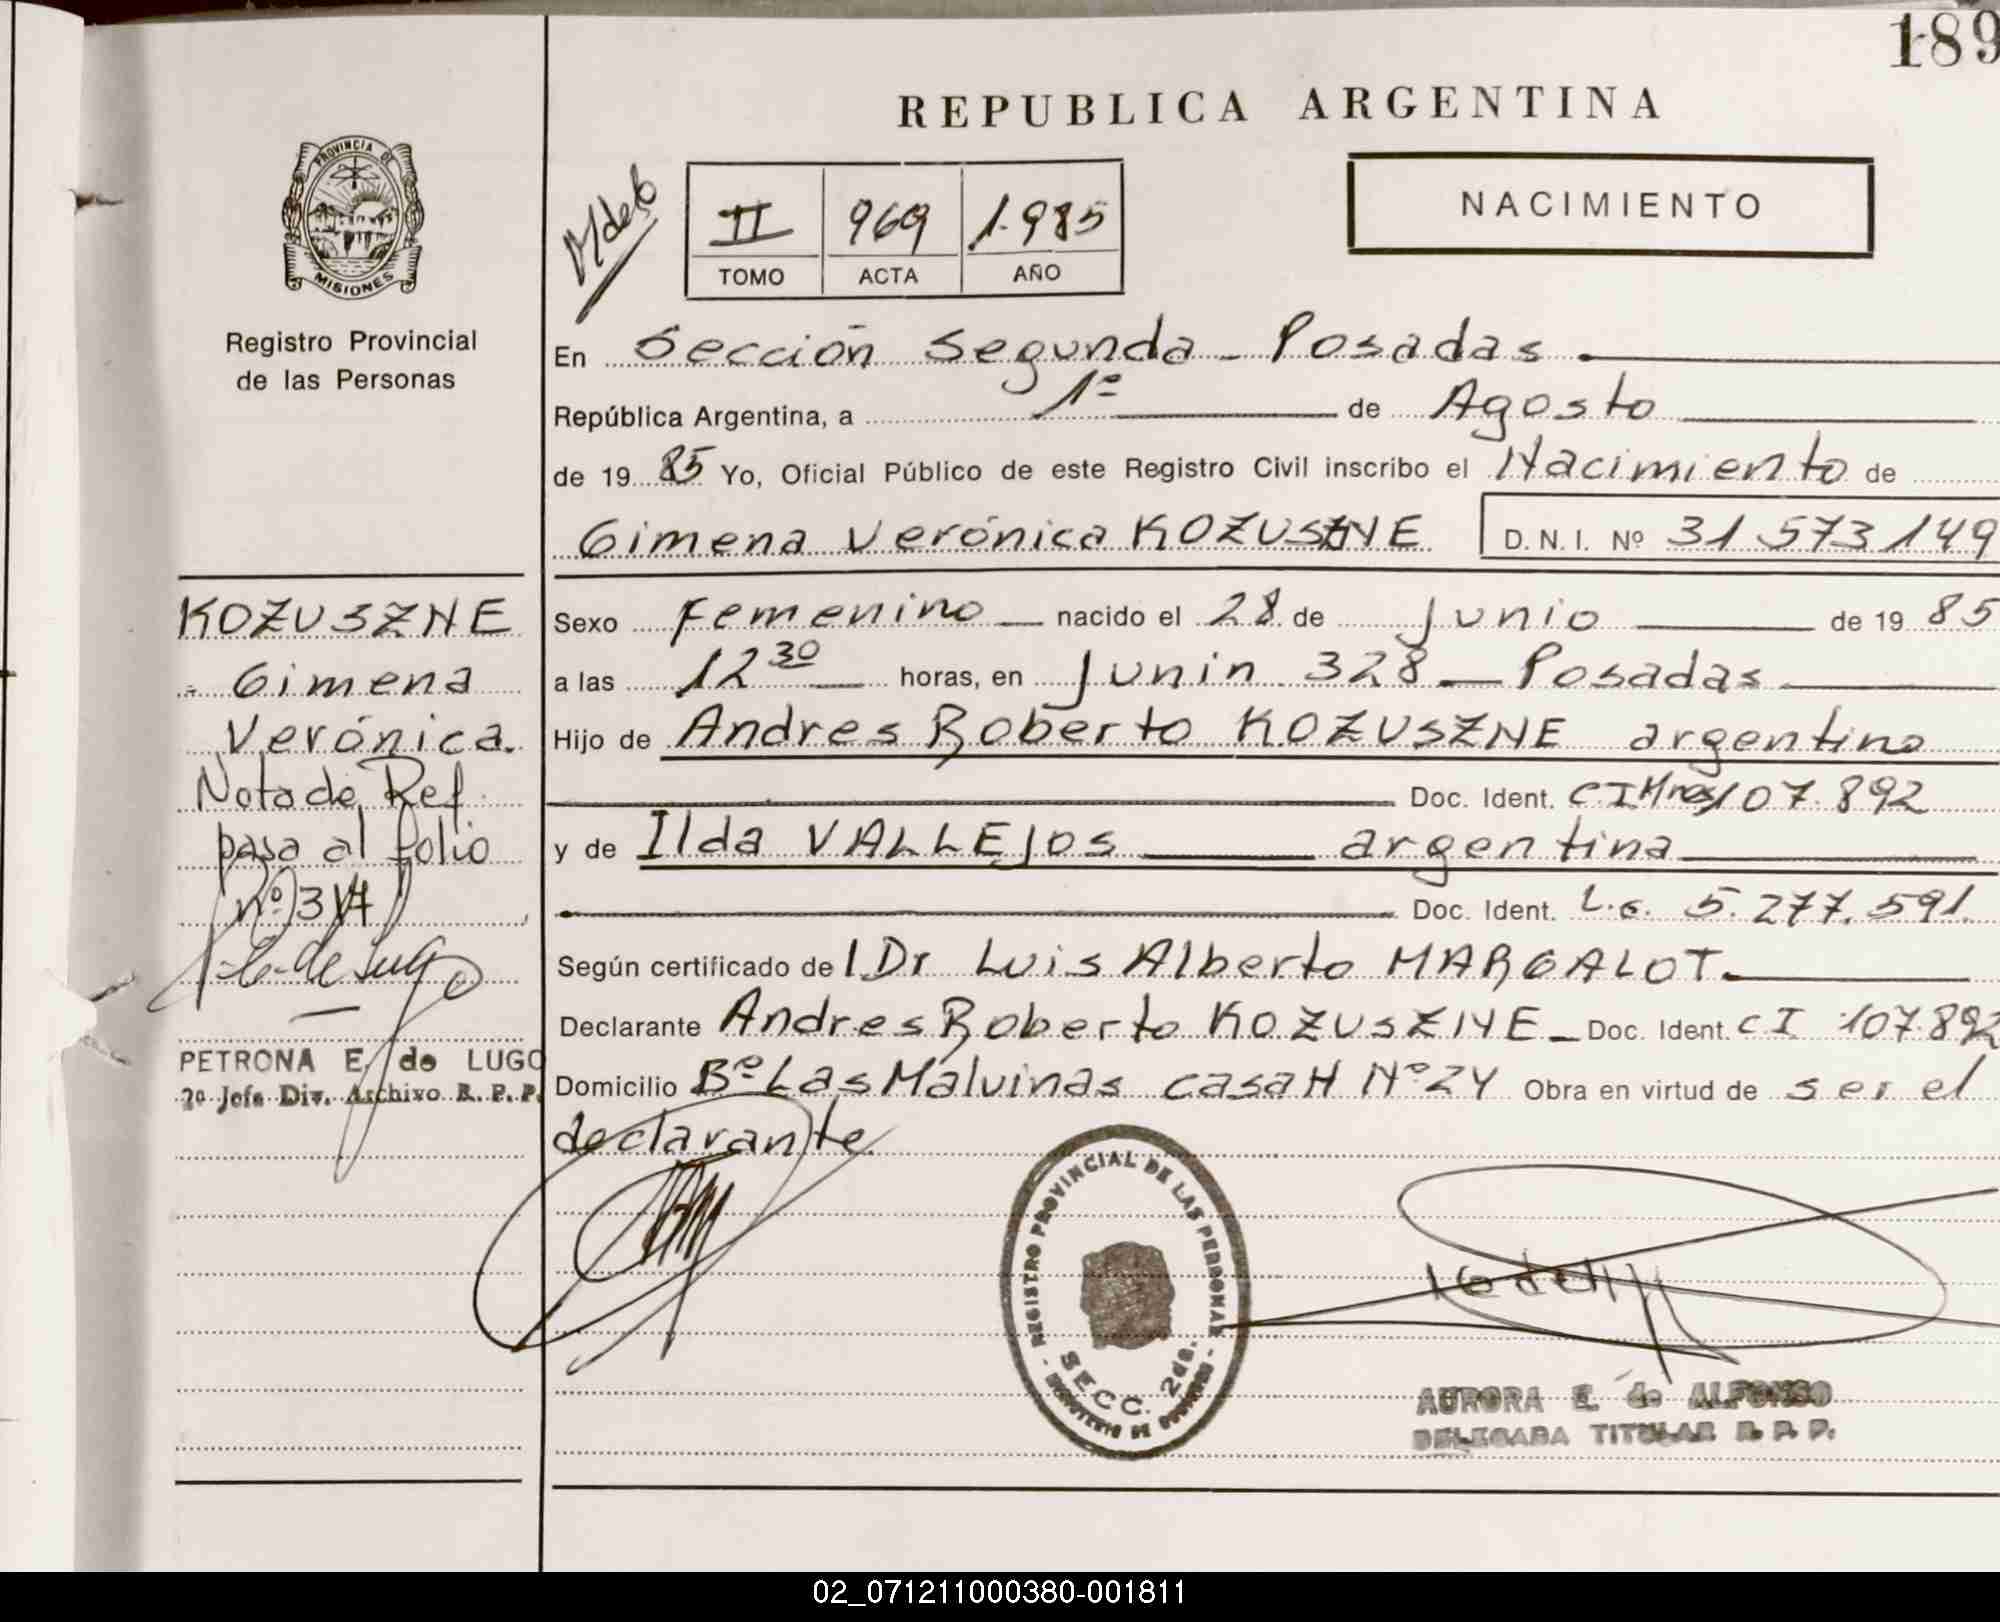 189
REPUBLICA ARGENTINA
PROVINCIA DE
MISIONES
Registro Provincial
de las Personas
II 969 1.985
TOMO ACTA AÑO
NACIMIENTO
En Sección Segunda - Posadas.
República Argentina, a 1º de Agosto
de 19 85 Yo, Oficial Público de este Registro Civil inscribo el Nacimiento de
Gimena Verónica KOZUSZNE D.N.I. Nº 31 573 149
Sexo Femenino nacido el 28 de Junio de 19 85
a las 12 30 horas, en Junin 328 - Posadas
Hijo de Andres Roberto KOZUSZNE argentino
Doc. Ident. CI Mnes 107.892
y de Ilda VALLEJOS argentina
Doc. Ident. L.c. 5.277.591
Según certificado del Dr Luis Alberto MARGALOT.
Declarante Andres Roberto KOZUSZNE - Doc. Ident. CI 107.892
Domicilio Bº Las Malvinas casa H Nº 24 Obra en virtud de ser el
declarante
KOZUSZNE
Gimena
Verónica.
Nota de Ref.
pasa al folio
nº 317
PETRONA E. de LUGO
2º Jefe Div. Archivo R. P. P.
REGISTRO PROVINCIAL DE LAS PERSONAS
SECC. 2da.
MINISTERIO DE GOBIERNO
AURORA E. de ALFONSO
DELEGADA TITULAR R. P. P.
02_071211000380-001811